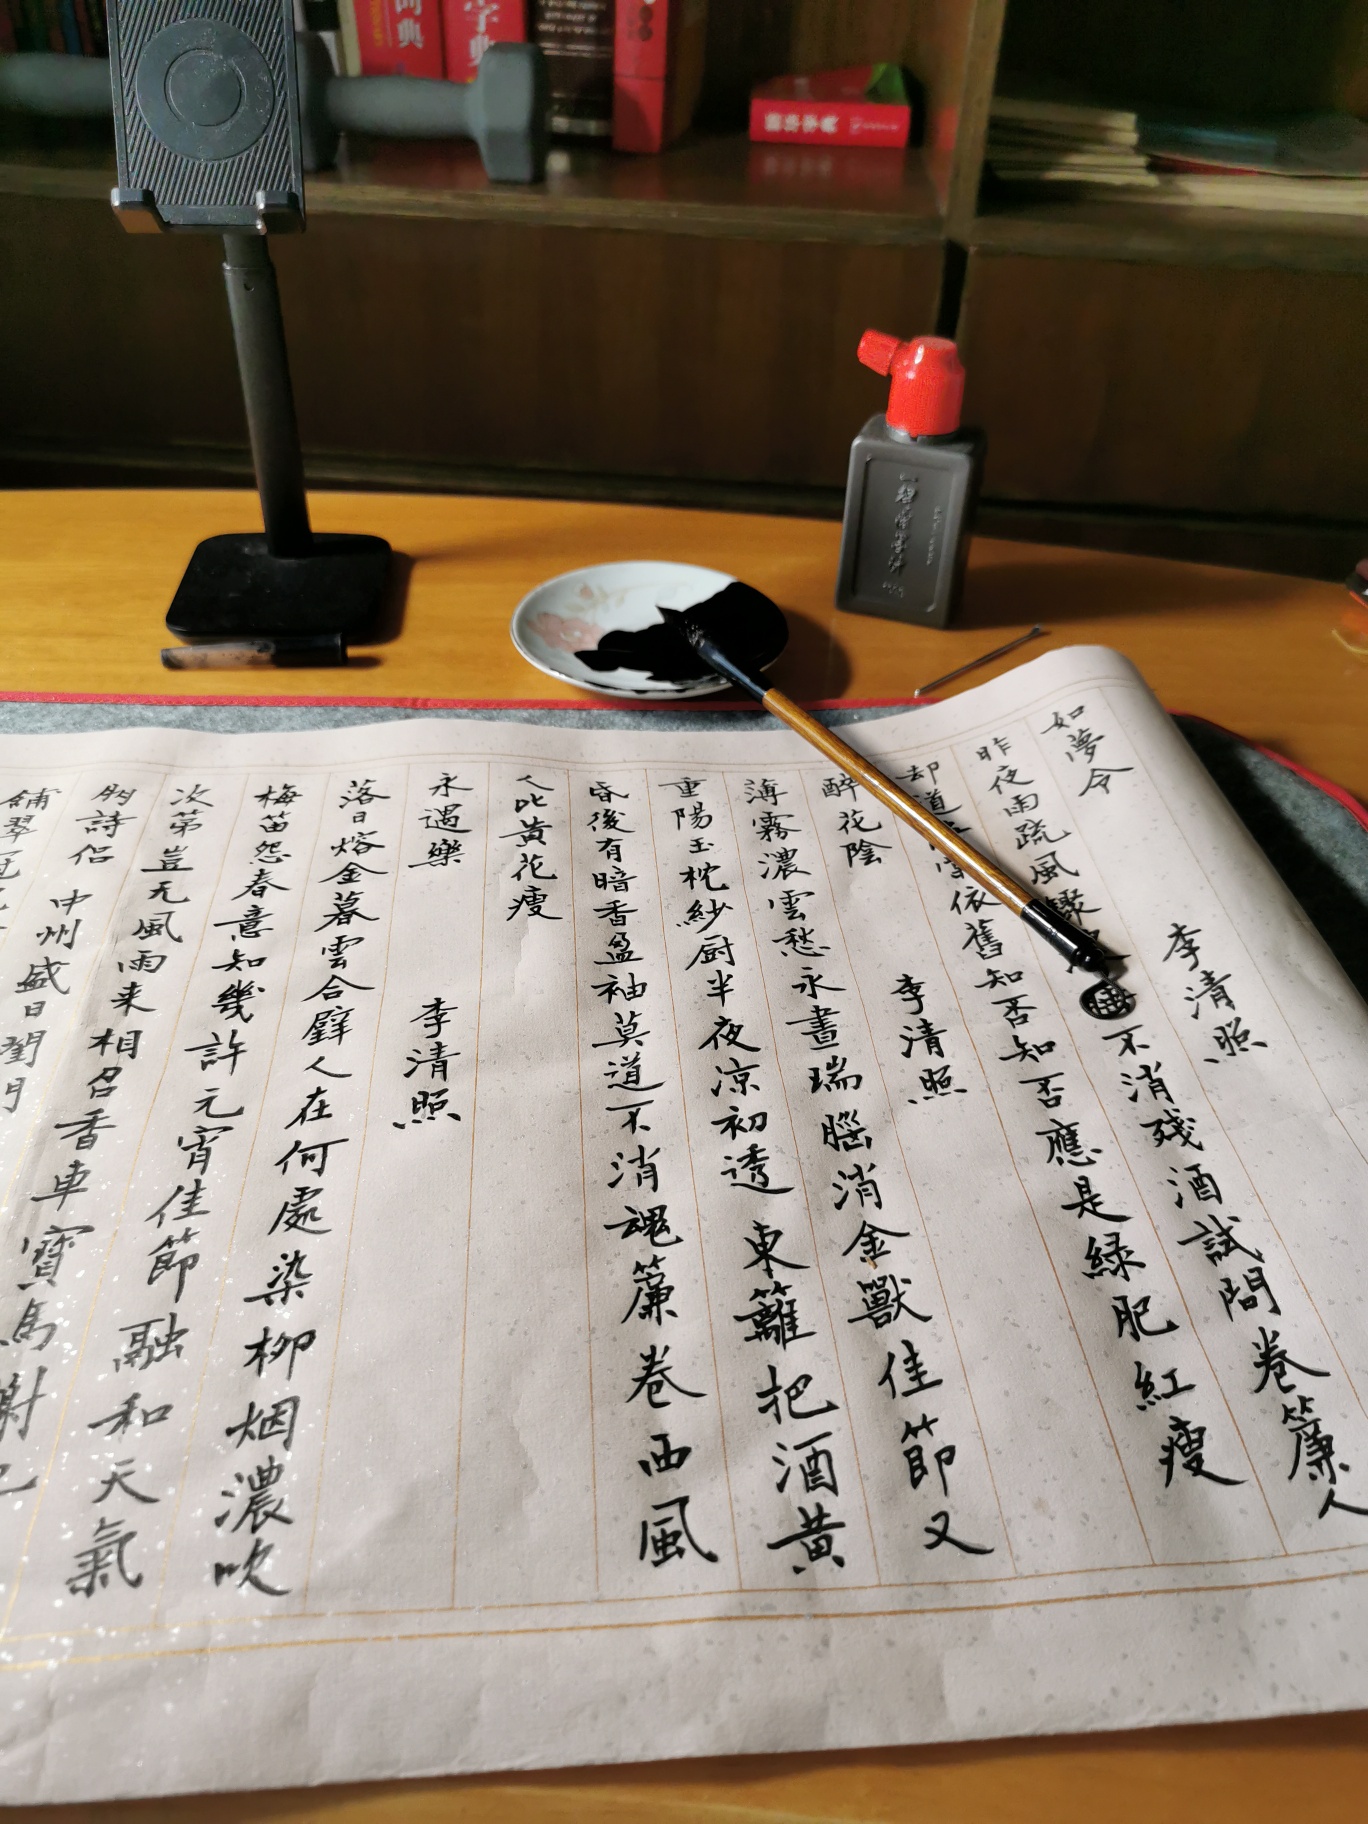 如夢令 李清照
昨夜雨疏風驟 不消殘酒試問卷簾人
却道 依舊知否知否應是綠肥紅瘦
醉花陰 李清照
薄霧濃雲愁永晝瑞腦消金獸佳節又
重陽玉枕紗厨半夜凉初透 東籬把酒黃
昏後有暗香盈袖莫道不消魂簾卷西風
人比黃花瘦
永遇樂 李清照
落日熔金暮雲合璧人在何處染柳烟濃吹
梅笛怨春意知幾許 元宵佳節融和天氣
次第豈无風雨来相召香車寶馬謝
朋詩侣 中州盛日閨門
鋪翠冠
典
字典
一得阁墨汁